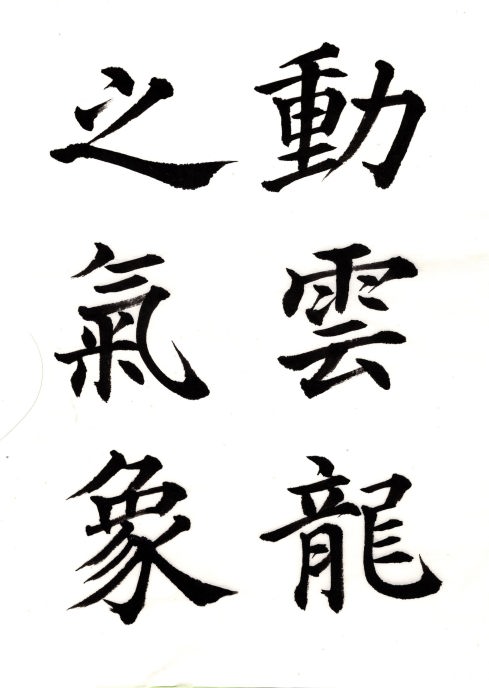 動雲龍
之氣象